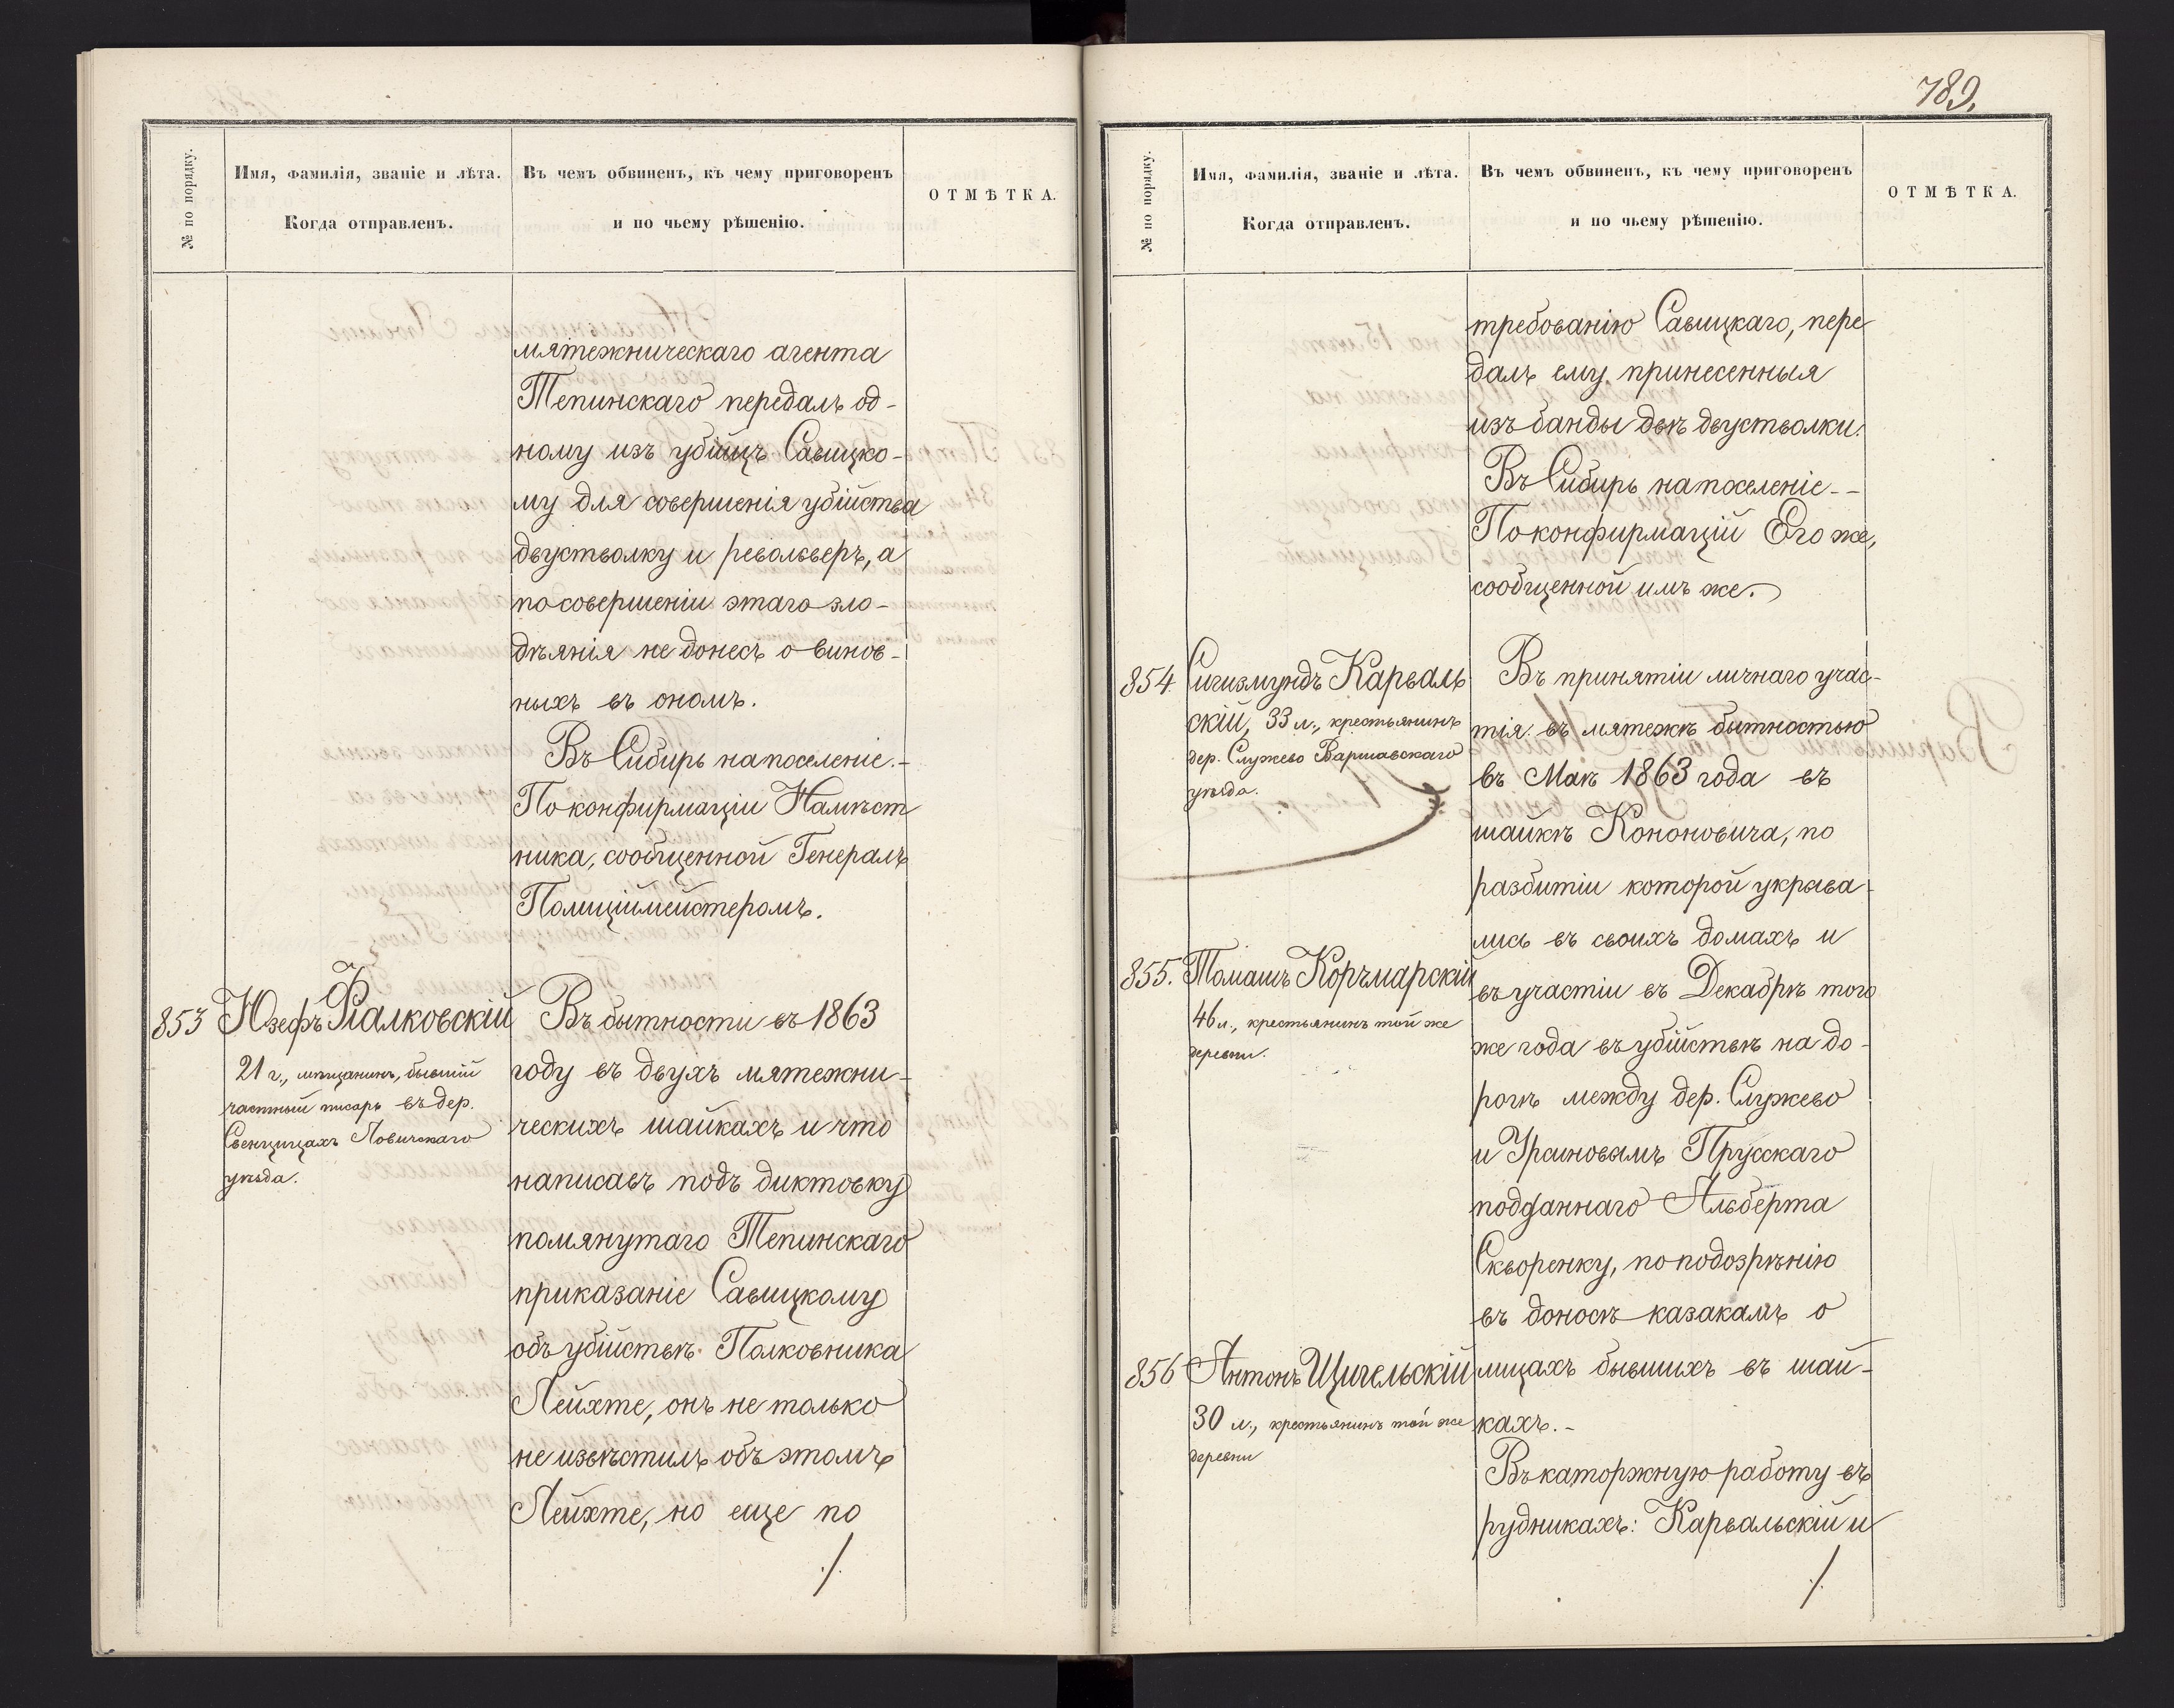 № по порядку.
Имя, фамилія, званіе и лѣта.
Когда отправленъ.
Въ чемъ обвиненъ, къ чему приговоренъ
и по чьему рѣшенію.
ОТМѢТКА.
мятежническаго агента
Тепинскаго передалъ од-
ному изъ убійцъ Савицко-
му для совершенія убійства
двустволку и револьверъ, а
по совершеніи этаго зло-
дѣянія не донесъ о винов-
ныхъ въ ономъ.
Въ Сибирь на поселеніе.-
По конфирмаціи Намѣст
ника, сообщенной Генералъ
Полиціймейстеромъ.
853
Юзефъ Фіалковскій
21 г., мѣщанинъ, бывшій
частный писарь въ дер.
Свенцицахъ Ловичскаго
уѣзда.
Въ бытности въ 1863
году въ двухъ мятежни-
ческихъ шайкахъ и что
написавъ подъ диктовку
помянутаго Тепинскаго
приказаніе Савицкому
объ убійствѣ Полковника
Лейхте, онъ не только
не извѣстилъ объ этомъ
Лейхте, но еще по
./.
789.
№ по порядку.
Имя, фамилія, званіе и лѣта.
Когда отправленъ.
Въ чемъ обвиненъ, къ чему приговоренъ
и по чьему рѣшенію.
ОТМѢТКА.
требованію Савицкаго, пере
далъ ему принесенныя
изъ банды двѣ двустволки.
Въ Сибирь на поселеніе--
По конфирмацій Его же,
сообщенной имъ же.
854.
Сигизмундъ Карваль
скій, 33 л., крестьянинъ
дер. Служево Варшавскаго
уѣзда.
855.
Томашъ Коръмарскій
46 л., крестьянинъ той же
деревни.
856
Антонъ Щигельскій
30 л., крестьянинъ той же
деревни
Въ принятіи личнаго учас-
тія въ мятежѣ бытностью
въ Маѣ 1863 года въ
шайкѣ Кононовича, по
разбитіи которой укрыва-
лись въ своихъ домахъ и
въ участіи въ Декабрѣ того
же года въ убійствѣ на до-
рогѣ между дер. Служево
и Урсиновымъ Прусскаго
подданнаго Альберта
Скворенку, по подозрѣнію
въ доносѣ казакамъ о
лицахъ бывшихъ въ шай-
кахъ.-
Въ каторжную работу въ
рудникахъ: Карвальскій и
./.